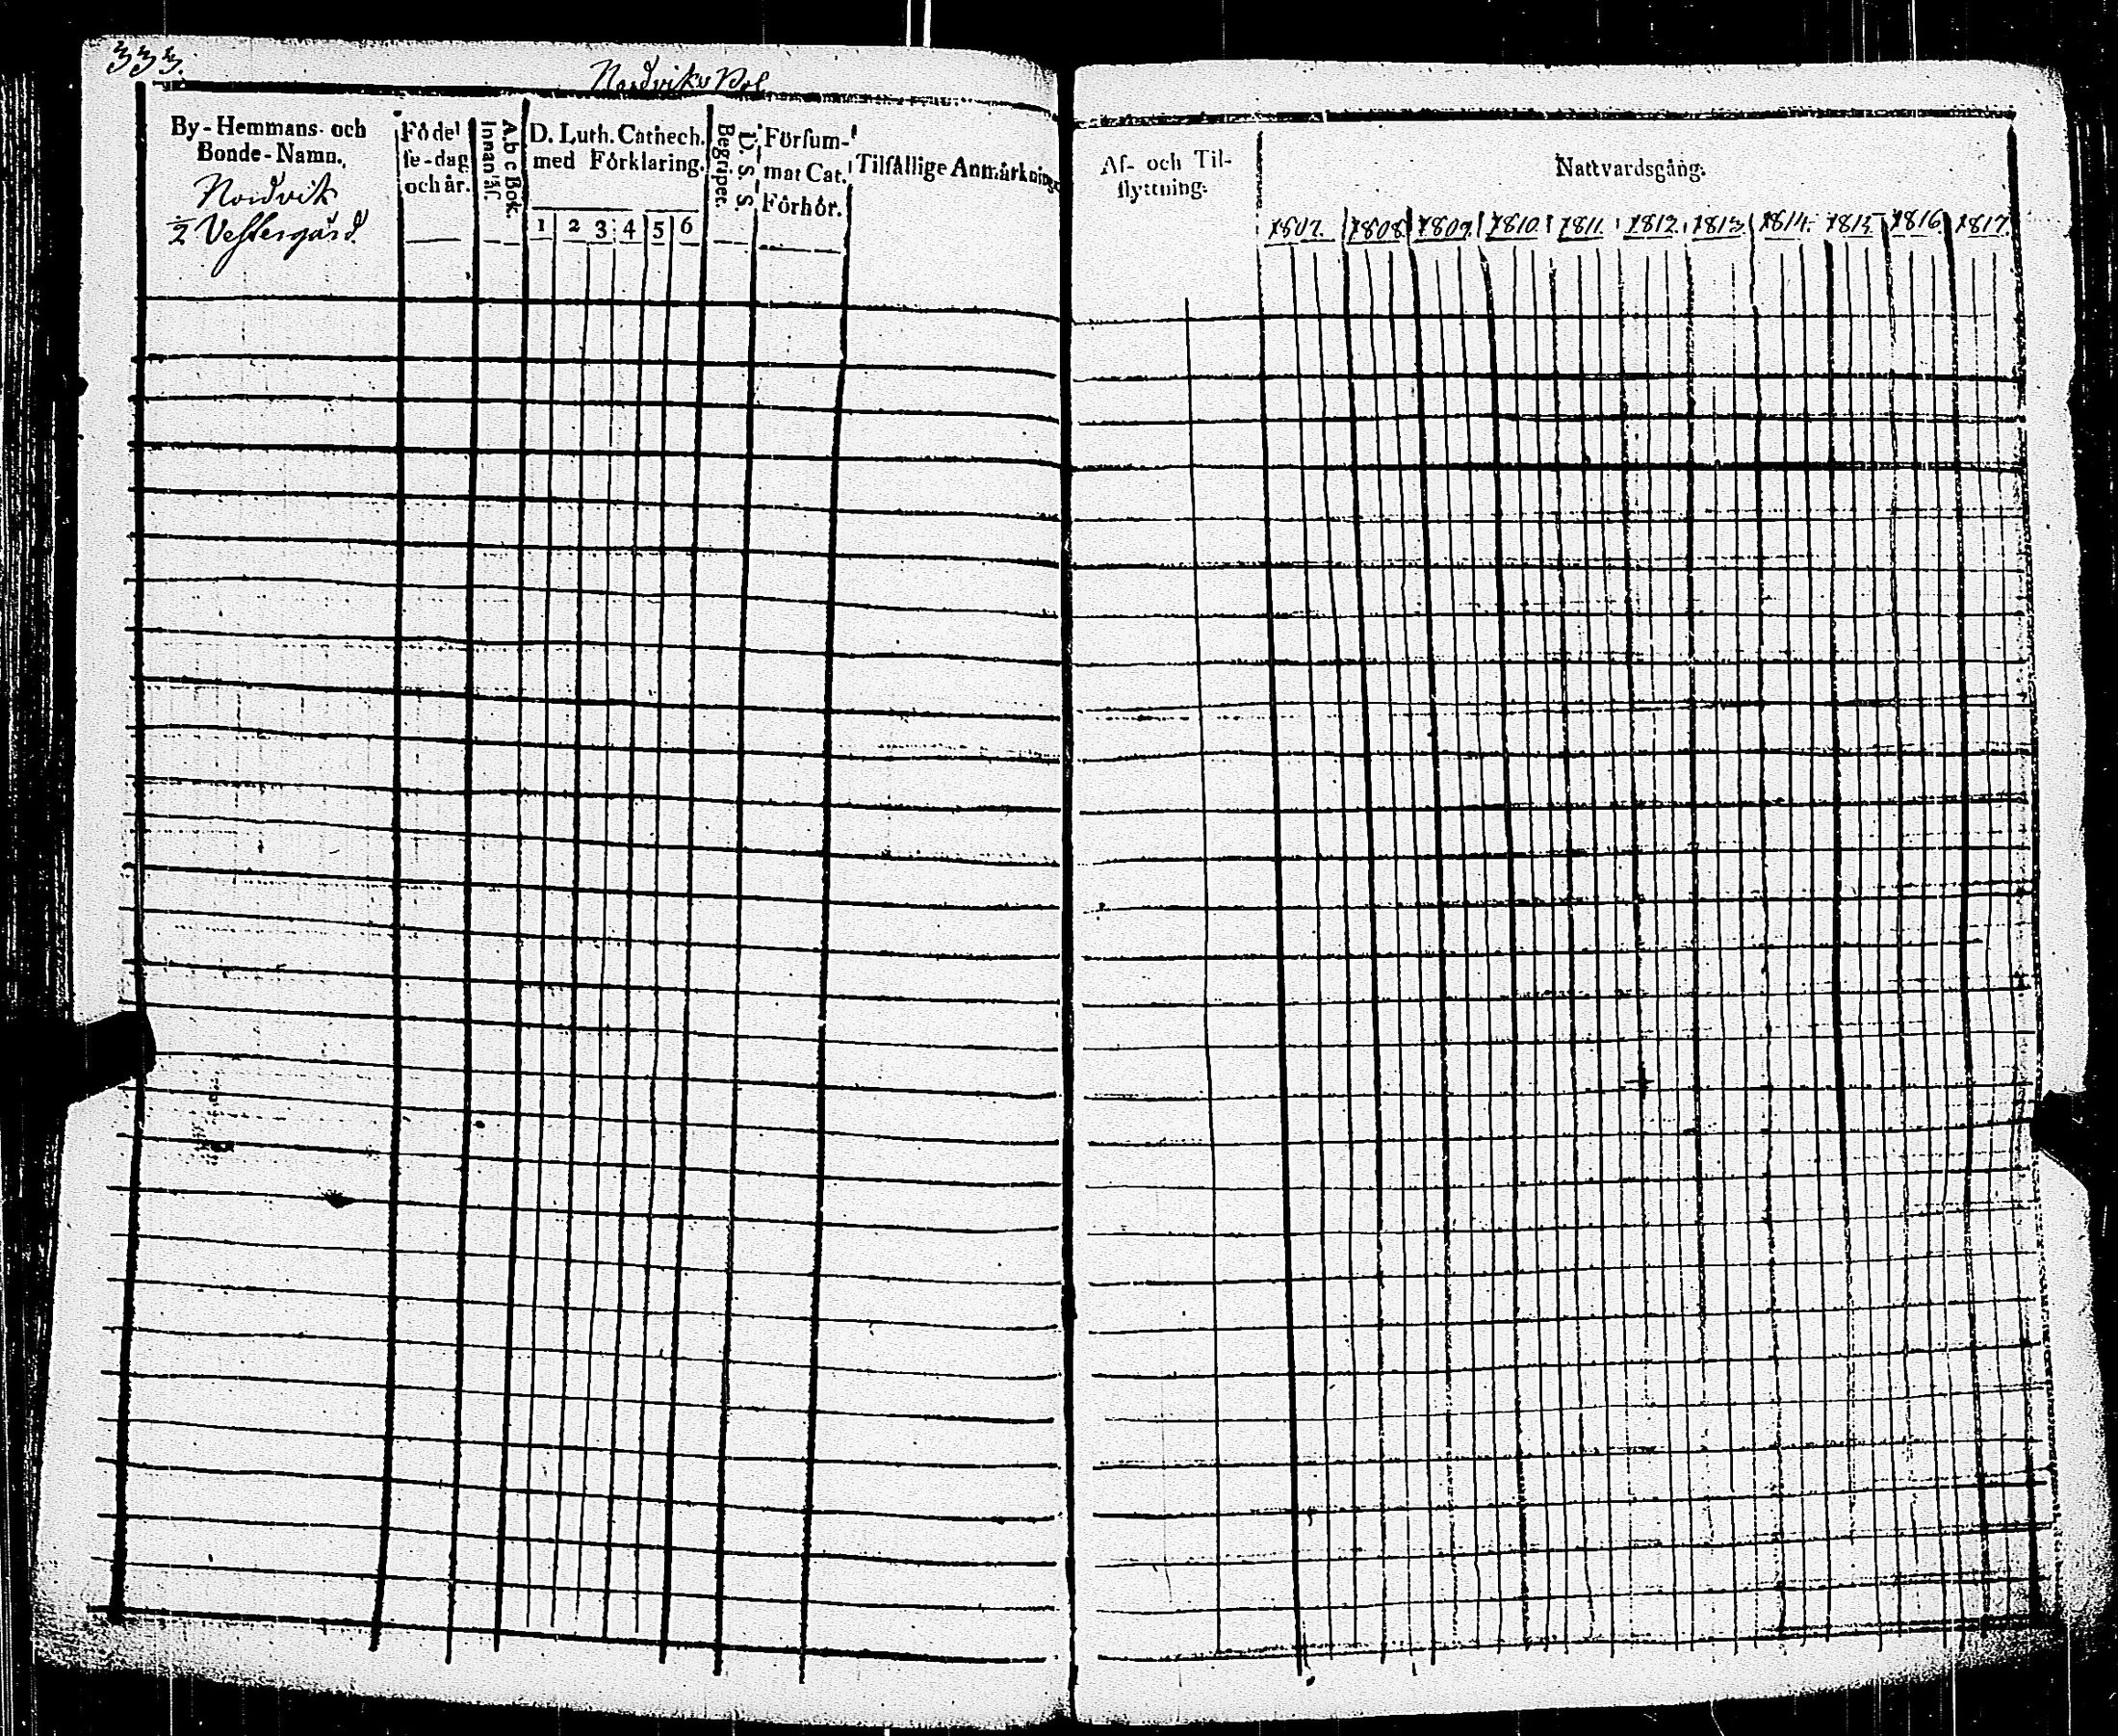 333.
Nordviks Rol
By-Hemmans- och
Bonde-Namn.
Nordvik
1/2 Vestergård
Födel
se-dag
och år.
A.b c Bok.
Innan läs.
D. Luth. Cathech.
med Förklaring.
1 2 3 4 5 6
D. S. S.
Begriper.
Försum-
mat Cat.
Förhör.
Tilfällige Anmärkning.
Af- och Til-
flyttning.
Nattvardsgång.
1807. 1808 1809 1810 1811. 1812. 1813 1814. 1815 1816 1817.